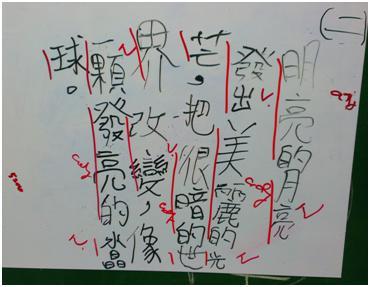 (二)
明亮的月亮
發出美麗的光
芒，把很暗的世
界改變，像
一顆發亮的水晶
球。